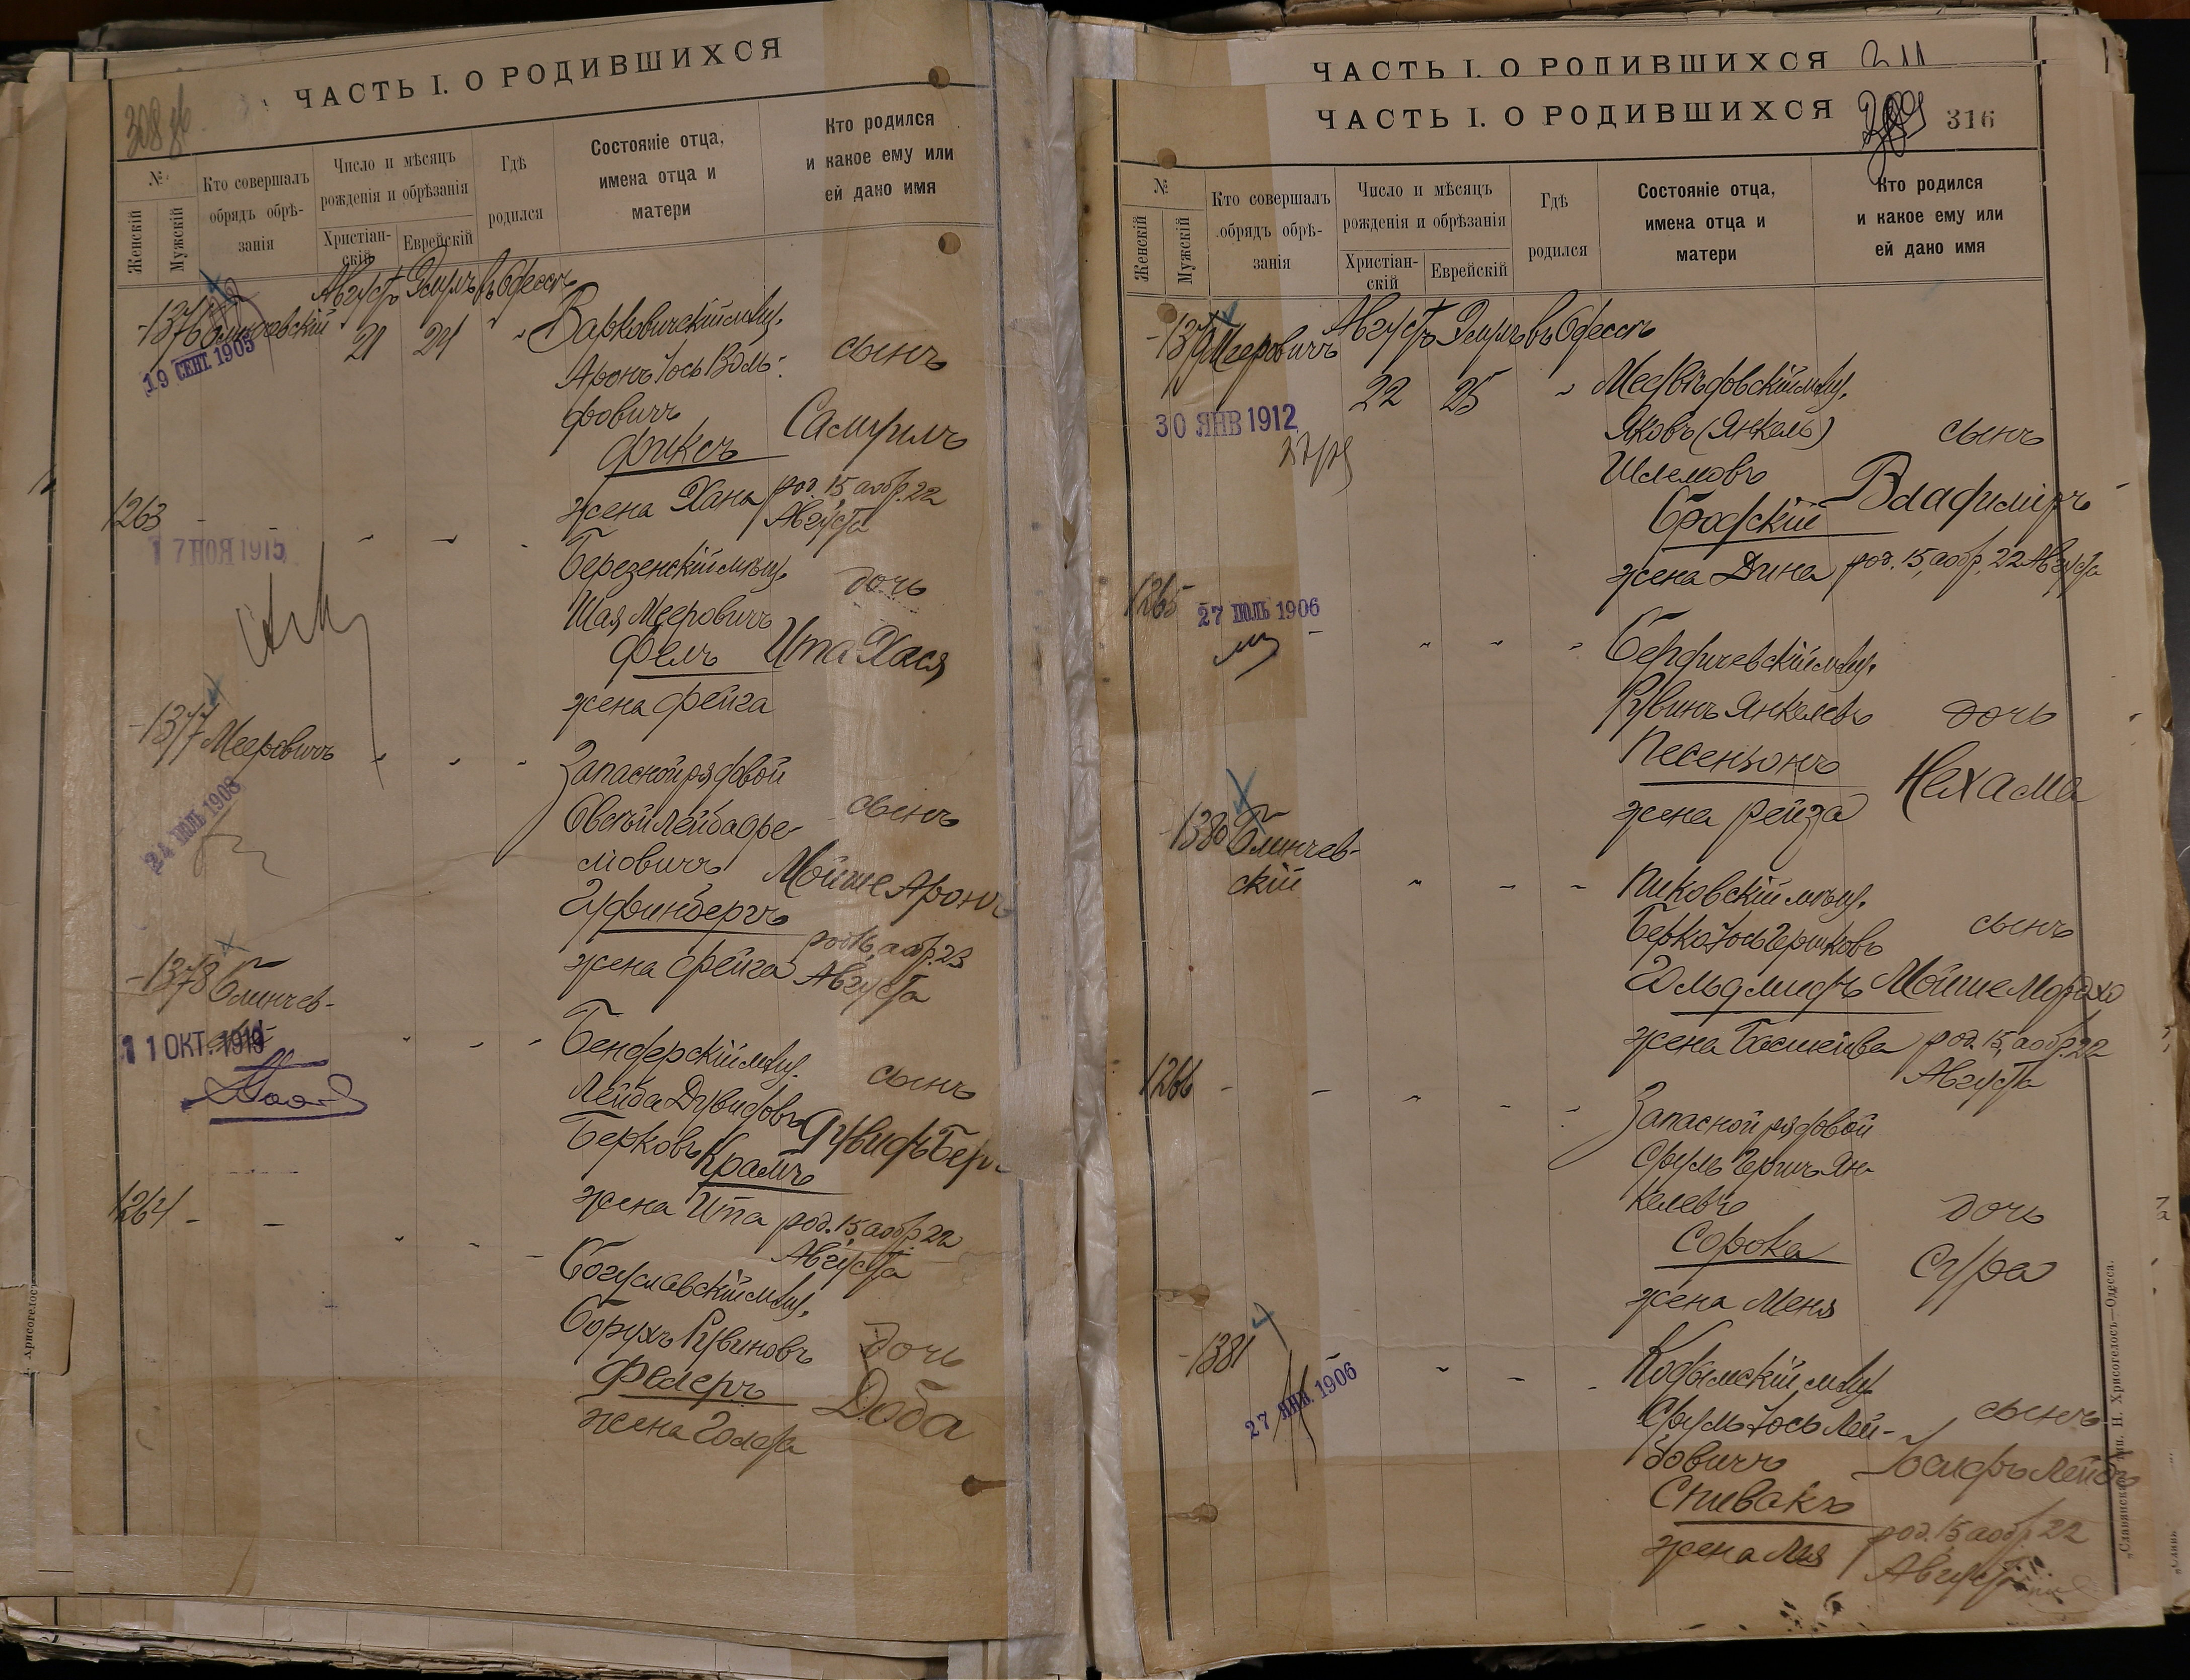 ЧАСТЬ I. О РОДИВШИХСЯ
308
№
Женскій
Мужскій
Кто совершалъ обрядъ обрѣ-
занія
Число и мѣсяцъ
рожденія и обрѣзанія
Христіан-
скій
Еврейскій
Гдѣ
родился
Состояніе отца,
имена отца и
матери
Кто родился
и какое ему или
ей дано имя
Августъ Элулъ въ Одессѣ
1376
21 24
19 СЕНТ 1905
Варковичскій мѣщ.
Аронъ Іось Воль-
фовичъ
Фиксъ
жена Хана
сынъ
Самуилъ
род. 15, а обр. 22
Августа
1263
17 НОЯ 1915
Березенскій мѣщ.
Шая Мееровичъ
Фелъ
жена Фейга
дочь
Ита Хася
1377 Мееровичъ
24 ІЮЛЬ 1908
Запасной рядовой
Овсѣй Лейба Фре-
мовичъ
Гуфинбергъ
жена Фейга
сынъ
Мойше Аронъ
род. 16, а обр. 23
Августа
1378 Блинчев-
скій
11 ОКТ. 1919
Бендерскій мѣщ.
Лейба Дувидовъ
Берковъ Крамъ
жена Ита
сынъ
Дувидъ Беръ
род. 15, а обр. 22
Августа
1264
Богуславскій мѣщ.
Борухъ Рувиновъ
Федеръ
жена Голда
дочь
Доба
ЧАСТЬ I. О РОДИВШИХСЯ 311
ЧАСТЬ I. О РОДИВШИХСЯ 309 316
№
Женскій
Мужскій
Кто совершалъ
обрядъ обрѣ-
занія
Число и мѣсяцъ
рожденія и обрѣзанія
Христіан-
скій
Еврейскій
Гдѣ
родился
Состояніе отца,
имена отца и
матери
Кто родился
и какое ему или
ей дано имя
Августъ Элулъ въ Одессѣ
1379 Мееровичъ
22 25
30 ЯНВ 1912
Яковъ (Янкель)
Шлемовъ
Бродскій
жена Дина
сынъ
Владиміръ
род. 15, а обр. 22 Августа
1265
27 ІЮЛЬ 1906
Бердичевскій мѣщ.
Рувинъ Янкелевъ
Песеньонъ
жена Рейза
дочь
Нехама
1380 Блинчев-
скій
Пиковскій мѣщ.
Берко Іось Гершковъ
Гольдлистъ
жена Башейва
сынъ
Мойше Мордхо
род. 15, а обр. 22
Августа
1266
Запасной рядовой
Сруль Гершъ Ян-
келевъ
Сорока
жена Меня
дочь
Сура
1381
27 ЯНВ 1906
Кодымскій мѣщ.
Сруль Іось Лей-
бовичъ
Спивакъ
жена Лея
сынъ
Іосифъ Лейбъ
род. 15, а обр. 22
Августа
„Славянская" тип. Н. Хрисогелосъ—Одесса.